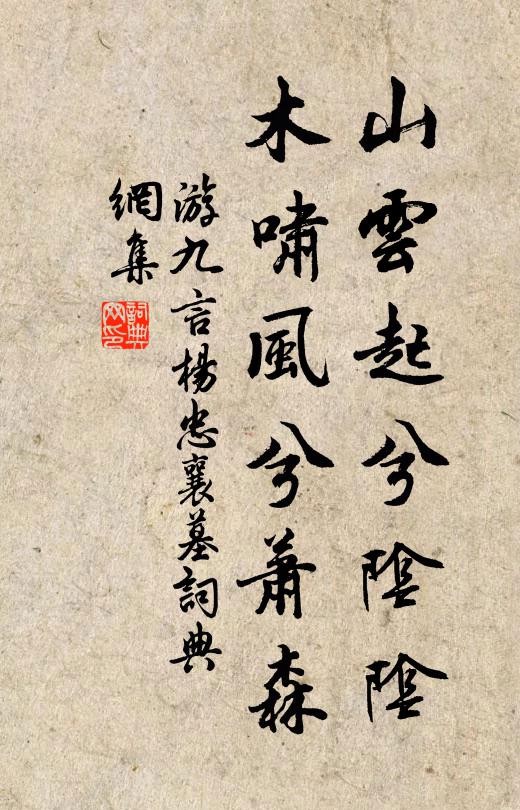 山雲起兮陰陰
木嘯風兮蕭森
游九言楊忠襄墓詞典
網集
詞典
网印